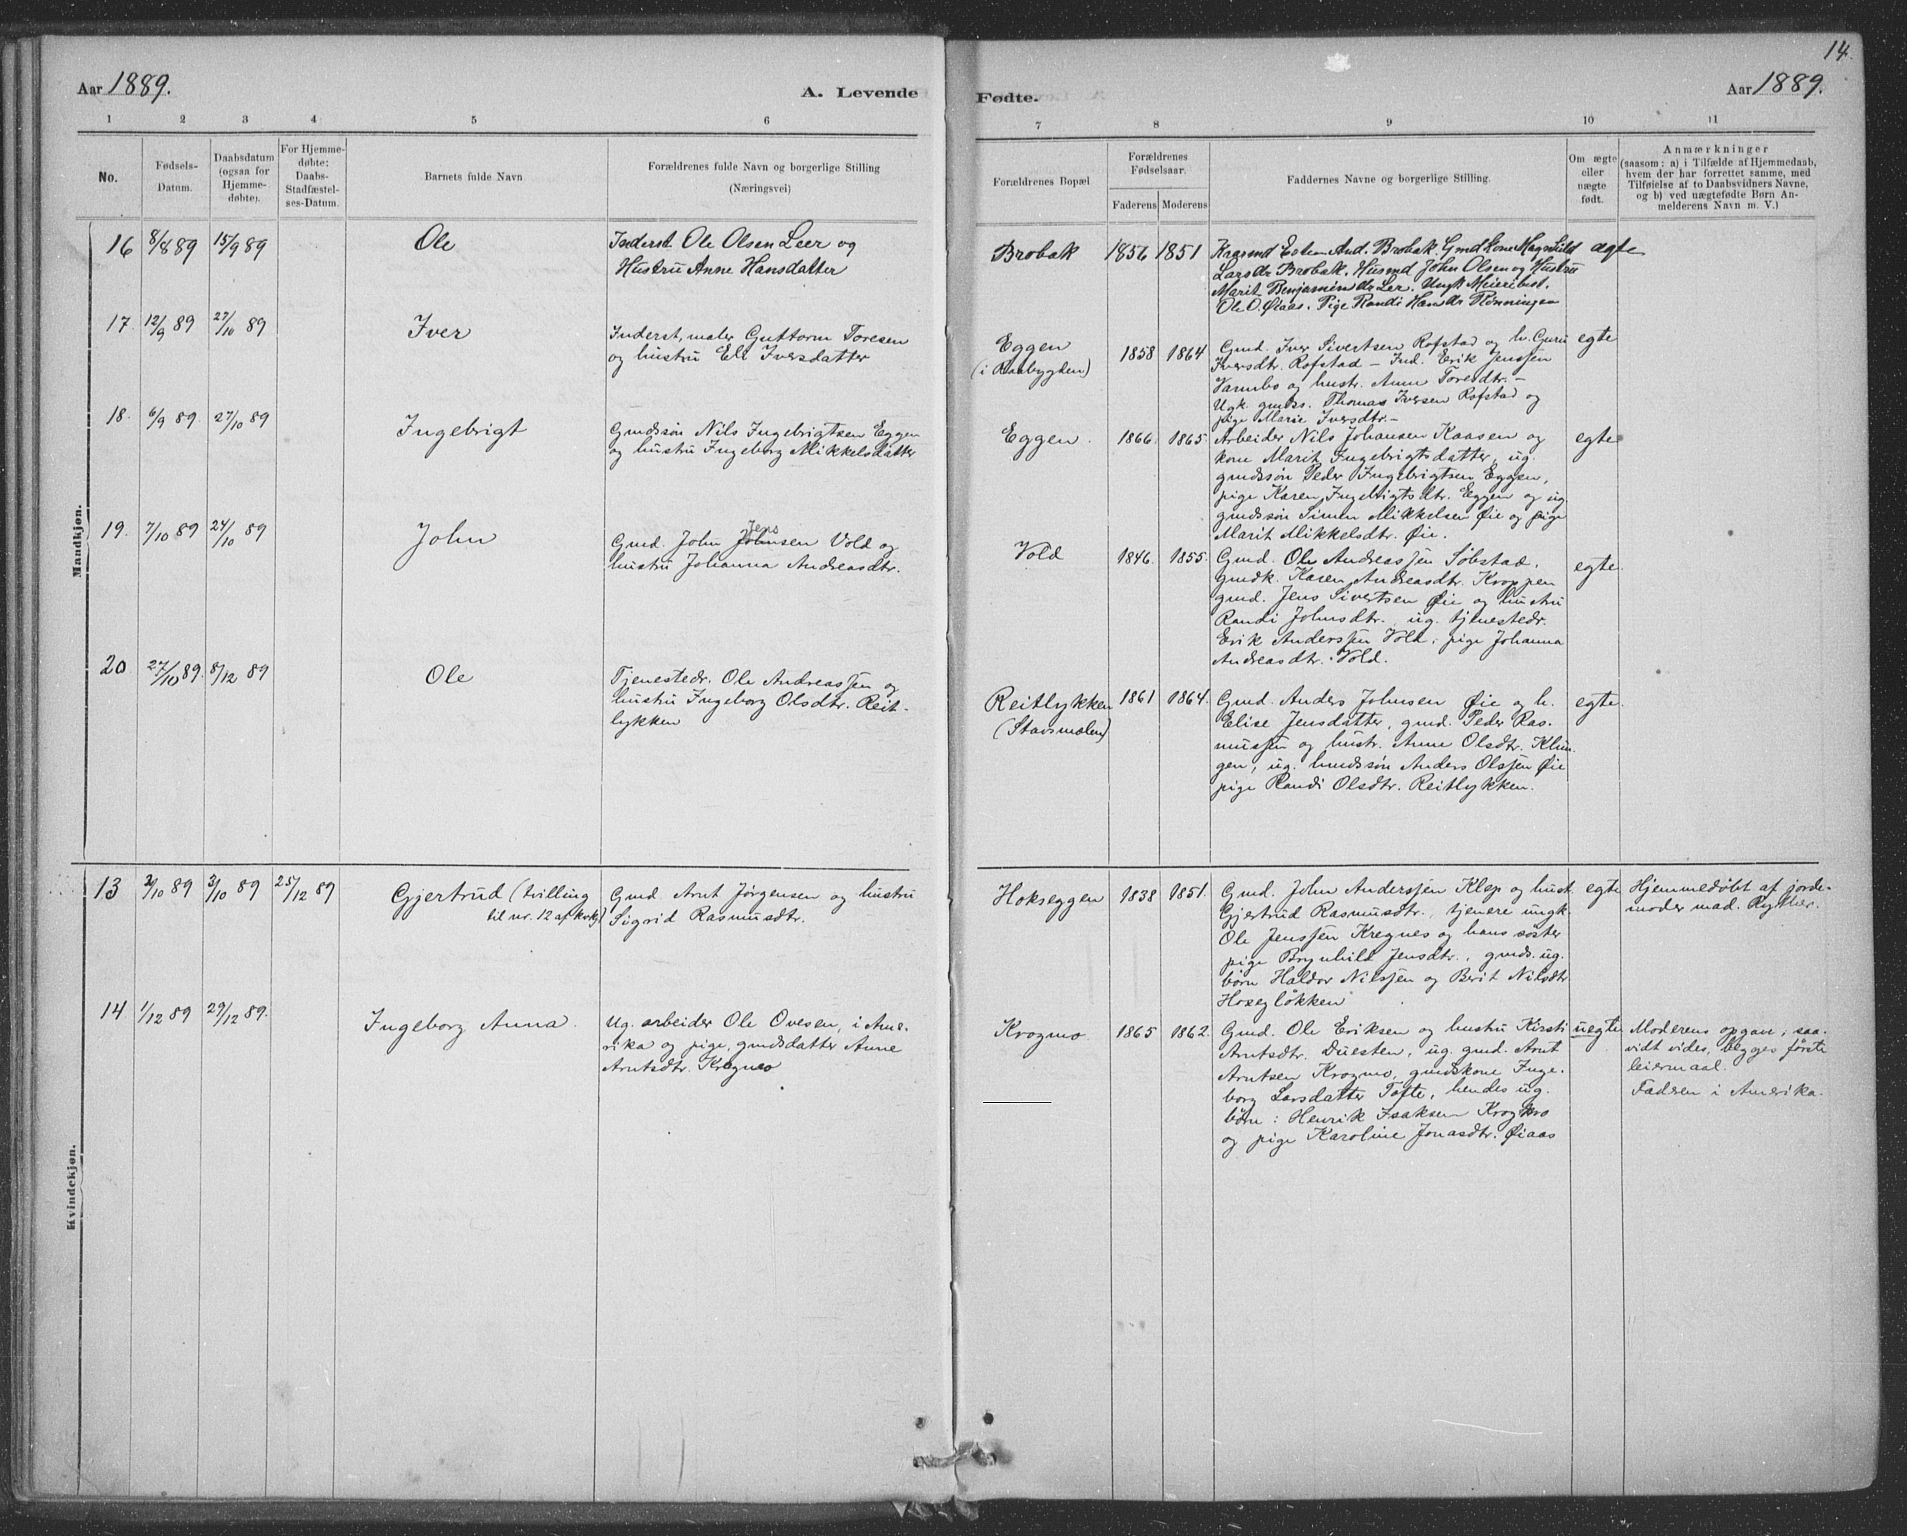 Aar 1889.
A. Levende
1 2 3 4 5 6
No.
Fødsels-
Datum.
Daabsdatum
(ogsaa for
Hjemme-
døbte).
For Hjemme-
døbte:
Daabs-
Stadfæstel-
ses-Datum.
Barnets fulde Navn
Forældrenes fulde Navn og borgerlige Stilling
(Næringsvei)
Mandkjøn.
16 8/8 89 15/9 89 Ole Inderst Ole Olsen Leer og
Hustru Anne Hansdatter
17. 12/9 89 27/10 89 Iver Inderst, maler Guttorm Toresen
og hustru Eli Iversdatter
18. 6/9 89. 27/10 89 Ingebrigt Gmdssøn Nils Ingebrigtsen Eggen
og hustru Ingeborg Mikkelsdatter
19. 7/10 89 24/10 89 John Gmd. John Jens Johnsen Vold og
hustru Johanna Andreasdtr.
20 27/10 89. 8/12 89 Ole Tjenestedr. Ole Andreassen og
hustru Ingeborg Olsdtr. Reit-
lykken
Kvindekjøn.
13 2/10 89 3/10 89 25/12 89 Gjertrud (tvilling Gmd. Arnt Jørgensen og hustru
til nr. 12 af kvkj.) Sigrid Rasmusdtr.
14 1/12 89 29/12 89. Ingeborg Anna. Ug. arbeider Ole Ovesen, i Ame-
rika og pige, gmdsdatter Anne
Arntsdtr. Krogmo
14.
Fødte.
Aar 1889.
7 8 9 10 11
Forældrenes Bopæl
Forældrenes
Fødselsaar.
Faderens Moderens
Faddernes Navne og borgerlige Stilling.
Om ægte
eller
nægte
født.
Anmærkninger
(saasom: a) i Tilfælde af Hjemmedaab,
hvem der har forrettet samme, med
Tilføielse af to Daabsvidners Navne,
og b) ved uægtefødte Børn An-
melderens Navn m. V.)
Brobak 1856 1851 Esten And. Brobak. Gmd Kone Magnhild ægte
Larsdr Brobak. Husmd John Olsen og Hustru
Marit Benjaminsdr Ler. Ungk Meieribest.
Ole O. Øiaas. Pige Randi Hansdr Rønningen
Eggen 1858 1864 Gmd. Iver Sivertsen Rofstad og h. Guru egte
(i Raabygden) Iversdtr. Rofstad - Ind. Erik Jenssen
Varmbo og hustr. Anne Toresdtr. -
Ugk. gmdss. Thomas Iversen Rofstad og
pige Marie Iversdtr. -
Eggen. 1866. 1865. Arbeider Nils Johansen Kaasen og egte
kone Marit Ingebrigtsdatter, ug.
gmdssøn Peder Ingebrigtsen Eggen,
pige Karen Ingebrigtsdtr. Eggen og ug.
gmdssøn Simen Mikkelsen Øie og pige
Marit Mikkelsdtr. Øie.
Vold 1846. 1855. Gmd. Ole Andreassen Søbstad, egte.
gmdk. Karen Andreasdtr. Kroppen
gmd. Jens Sivertsen Øie og hustru
Randi Johnsdtr., ug. tjenestedr.
Erik Anderssen Vold, pige Johanna
Andreasdtr. Vold.
Reitlykken 1861 1864. Gmd. Anders Johnsen Øie og h. egte.
(Stavsmælen) Elise Jensdatter, gmd. Peder Ras-
mussen og hustr. Anne Olsdtr. Klun-
gen, ug. Anders Olssen Øie
pige Randi Olsdtr. Reitlykken.
Hokseggen 1838 1851. Gmd. John Anderssen Klep og hust. egte Hjemmedøbt af jorde-
Gjertrud Rasmusdtr., tjenere ungk. moder mad. Rytter.
Ole Jenssen Kregnes og hans søster
pige Brynhild Jensdtr., gmds. ug.
børn Haldor Nilssen og Berit Nilsdtr
Hoxegløkken
Krogmo 1865 1862. Gmd. Ole Eriksen og hustru Kirsti uegte Moderens opgave; saa-
Arntsdtr. Duesten, ug. gmd. Arnt vidt vides, begges første
Arntsen Krogmo, gmdskone Inge- leiermaal.
borg Larsdatter Tofte, hendes ug. Faderen i Amerika.
børn: Henrik Isaksen Krogmo
og pige Karoline Jonasdtr. Øiaas